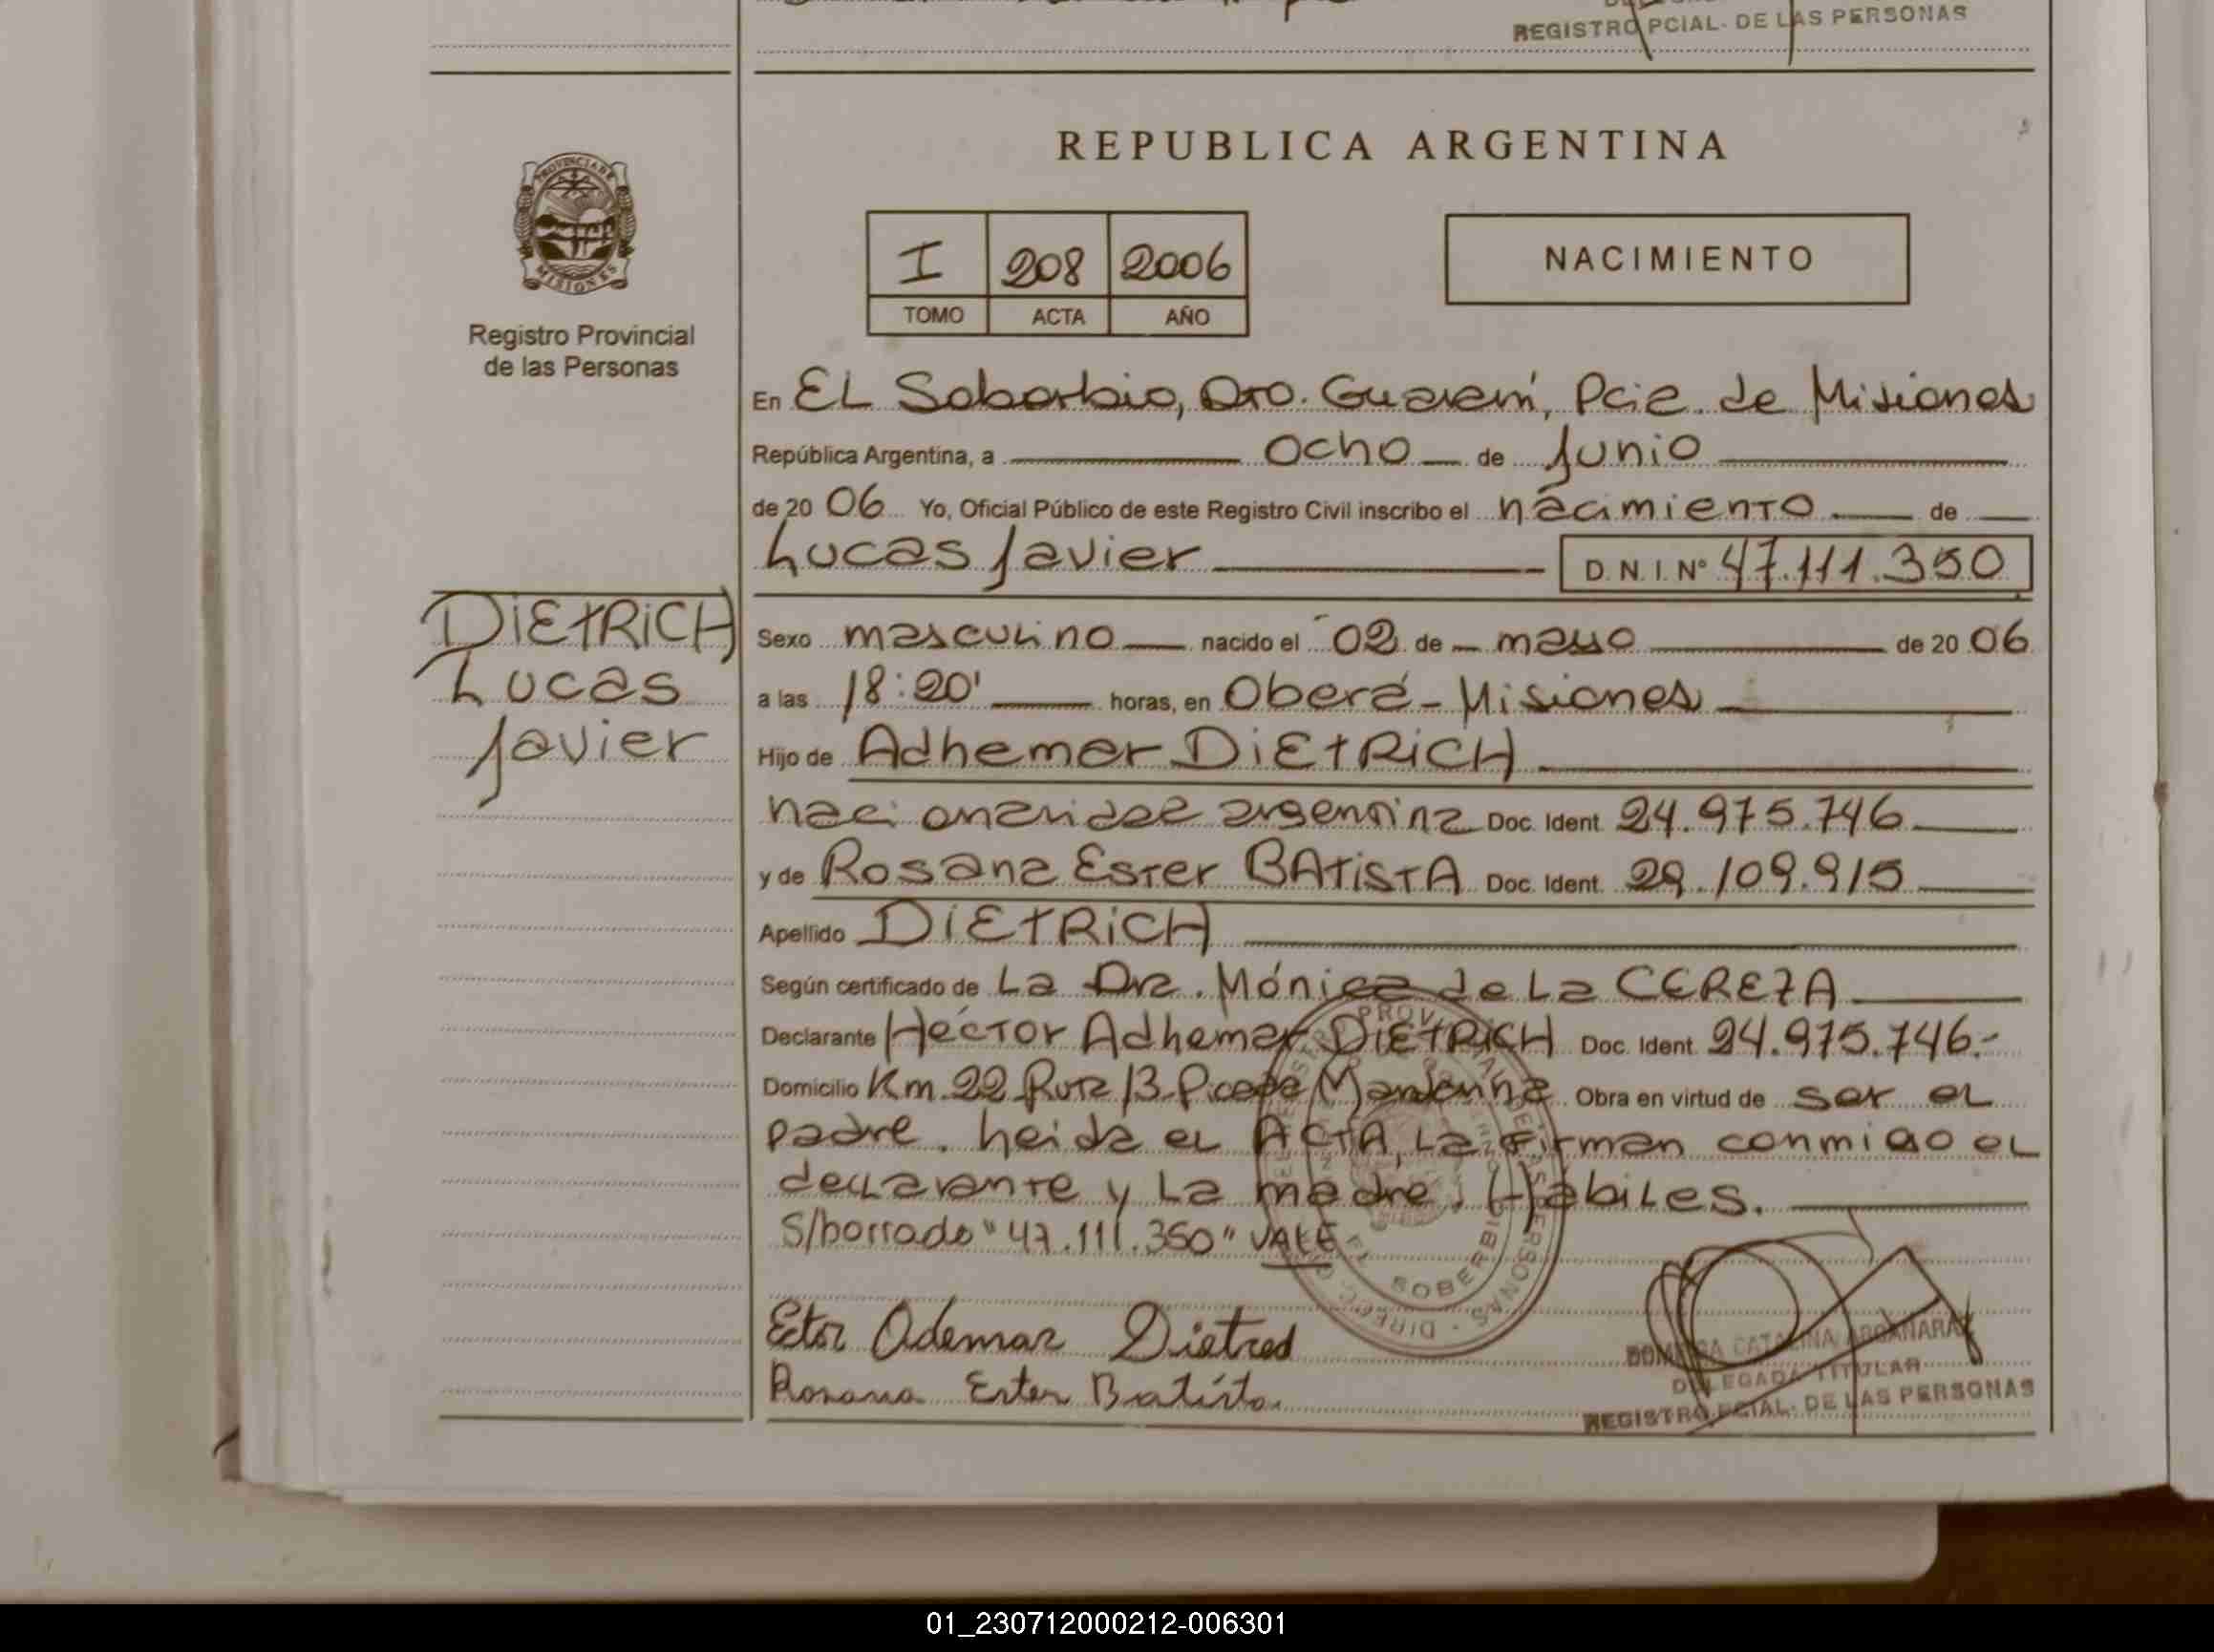 REGISTRO PCIAL. DE LAS PERSONAS
PROVINCIA DE
MISIONES
Registro Provincial
de las Personas
REPUBLICA ARGENTINA
I 208 2006
TOMO ACTA AÑO
NACIMIENTO
En EL Soberbio, Dto. Guaraní, Pcia. de Misiones
República Argentina, a ocho de Junio
de 20 06 Yo, Oficial Público de este Registro Civil inscribo el nacimiento de
Lucas Javier D.N.I. Nº 47.111.350
DIETRICH
Lucas
Javier
Sexo masculino nacido el 02 de mayo de 20 06
a las 18:20' horas, en Oberá - Misiones
Hijo de Adhemar DIETRICH
nacionalidad argentina Doc. Ident. 24.975.746
y de Rosana Ester BATISTA Doc. Ident. 29.109.915
Apellido DIETRICH
Según certificado de La Dra. Mónica de La CEREZA
Declarante Héctor Adhemar DIETRICH Doc. Ident. 24.975.746.-
Domicilio Km. 22 Ruta 13 Picada Obra en virtud de ser el
padre. Leida el ACTA, La Firman conmigo el
declarante y La madre. Hábiles.
S/borrado "47.111.350" VALE
EL SOBERBIO
Ector Ademar Dietred
Rosana Ester Batista
DELEGADA TITULAR
REGISTRO PCIAL. DE LAS PERSONAS
01_230712000212-006301